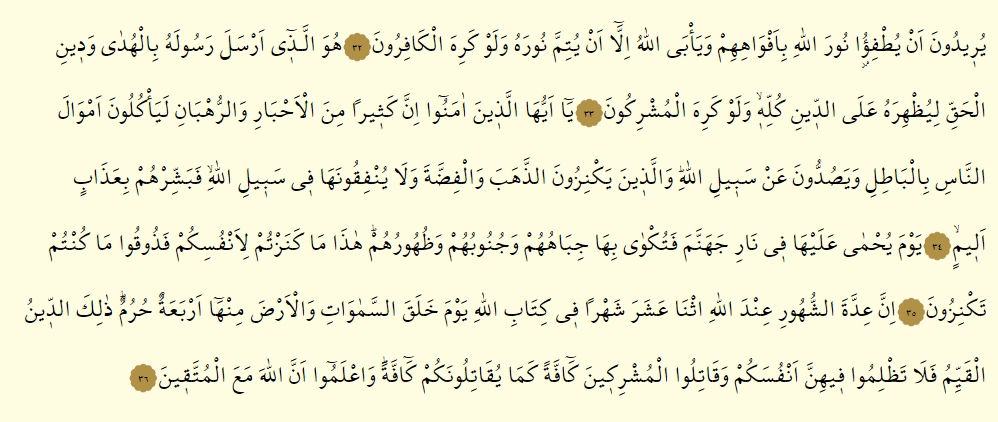 يُرٖيدُونَ اَنْ يُطْفِؤُ۫ا نُورَ اللهِ بِاَفْوَاهِهِمْ وَيَأْبَى اللهُ اِلَّٓا اَنْ يُتِمَّ نُورَهُ وَلَوْ كَرِهَ الْكَافِرُونَ ٣٢ هُوَ الَّذٖٓى اَرْسَلَ رَسُولَهُ بِالْهُدٰى وَدٖينِ
الْحَقِّ لِيُظْهِرَهُ عَلَى الدّٖينِ كُلِّهٖۙ وَلَوْ كَرِهَ الْمُشْرِكُونَ ٣٣ يَٓا اَيُّهَا الَّذٖينَ اٰمَنُٓوا اِنَّ كَثٖيرًا مِنَ الْاَحْبَارِ وَالرُّهْبَانِ لَيَأْكُلُونَ اَمْوَالَ
النَّاسِ بِالْبَاطِلِ وَيَصُدُّونَ عَنْ سَبٖيلِ اللهِؕ وَالَّذٖينَ يَكْنِزُونَ الذَّهَبَ وَالْفِضَّةَ وَلَا يُنْفِقُونَهَا فٖى سَبٖيلِ اللهِۙ فَبَشِّرْهُمْ بِعَذَابٍ
اَلٖيمٍۙ ٣٤ يَوْمَ يُحْمٰى عَلَيْهَا فٖى نَارِ جَهَنَّمَ فَتُكْوٰى بِهَا جِبَاهُهُمْ وَجُنُوبُهُمْ وَظُهُورُهُمْؕ هٰذَا مَا كَنَزْتُمْ لِاَنْفُسِكُمْ فَذُوقُوا مَا كُنْتُمْ
تَكْنِزُونَ ٣٥ اِنَّ عِدَّةَ الشُّهُورِ عِنْدَ اللهِ اثْنَا عَشَرَ شَهْرًا فٖى كِتَابِ اللهِ يَوْمَ خَلَقَ السَّمٰوَاتِ وَالْاَرْضَ مِنْهَٓا اَرْبَعَةٌ حُرُمٌؕ ذٰلِكَ الدّٖينُ
الْقَيِّمُ فَلَا تَظْلِمُوا فٖيهِنَّ اَنْفُسَكُمْ وَقَاتِلُوا الْمُشْرِكٖينَ كَٓافَّةً كَمَا يُقَاتِلُونَكُمْ كَٓافَّةًؕ وَاعْلَمُٓوا اَنَّ اللهَ مَعَ الْمُتَّقٖينَ ٣٦